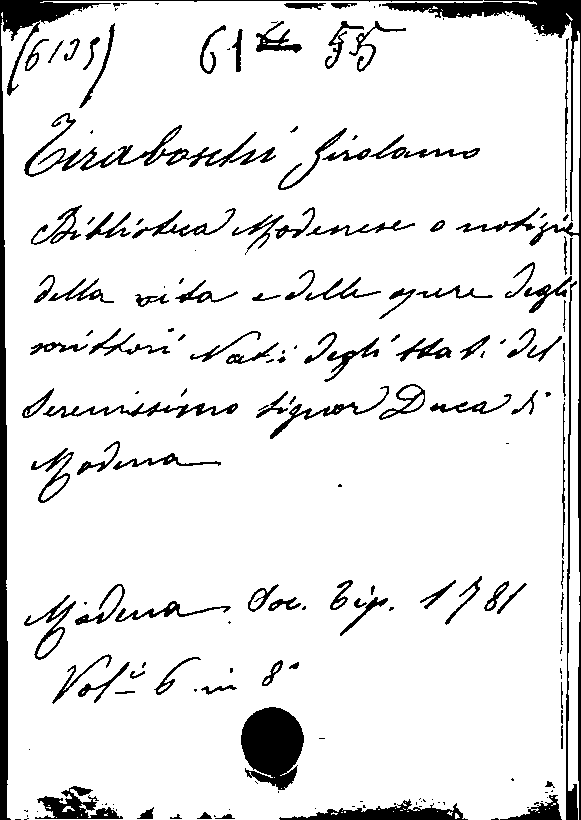 (6133) 61 55
Tiraboschi Girolamo
Biblioteca Modenese o notizie
della vita e delle opere degli
scrittori Natii degli stati del
Serenissimo signor Duca di
Modena
Modena Soc. Tip. 1781
Vol.i 6 in 8°